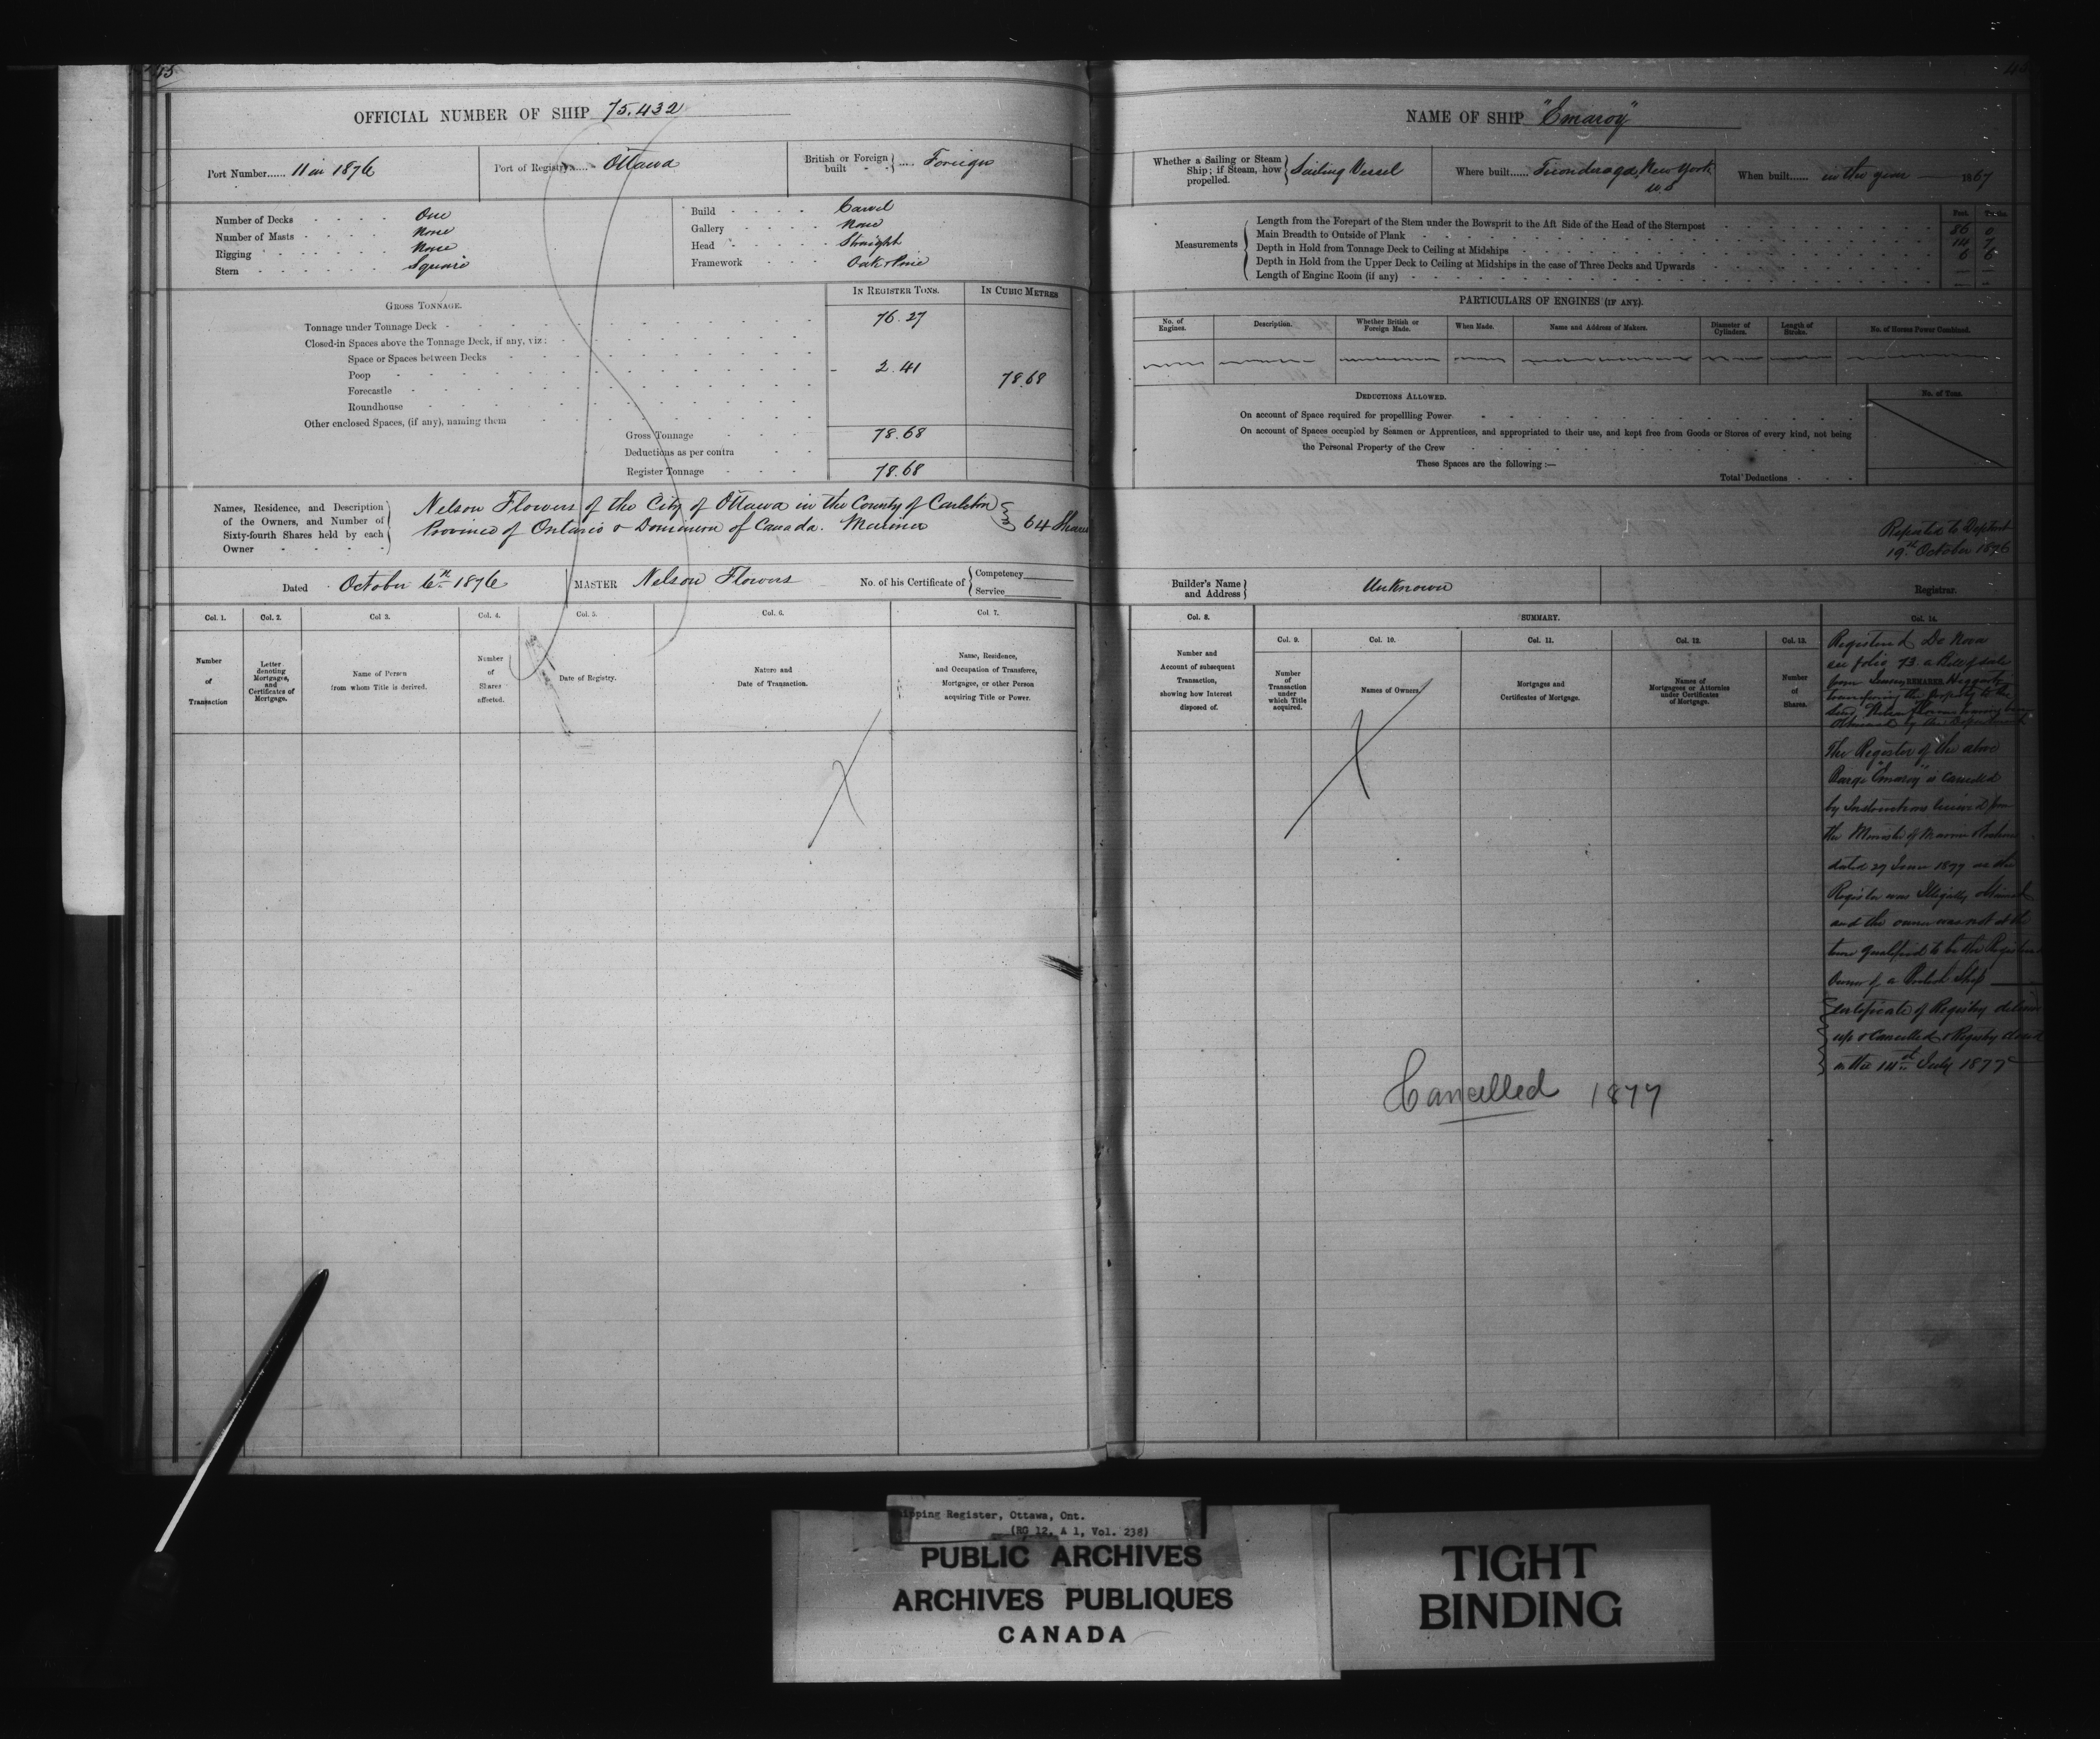 OFFICIAL NUMBER OF SHIP 75.432
Port Number...... 11 in 1876
Port of Registry..... Ottawa
British or Foreign built .... Foreign
Number of Decks One
Number of Masts None
Rigging None
Stern Square
Build Carvel
Gallery None
Head Straight
Framework Oak & Pine
GROSS TONNAGE.
IN REGISTER TONS.
IN CUBIC METRES
Tonnage under Tonnage Deck 76.27
Closed-in Spaces above the Tonnage Deck, if any, viz:
Space or Spaces between Decks
Poop 2.41
78.68
Forecastle
Roundhouse
Other enclosed Spaces, (if any), naming them
Gross Tonnage 78.68
Deductions as per contra
Register Tonnage 78.68
Names, Residence, and Description of the Owners, and Number of Sixty-fourth Shares held by each Owner
Nelson Flowers of the City of Ottawa in the County of Carleton
Province of Ontario & Dominion of Canada. Mariner
64 Shares
Dated October 6th 1876
MASTER Nelson Flowers
No. of his Certificate of
Competency
Service
Col. 1.
Col. 2.
Col 3.
Col. 4.
Col. 5.
Col. 6.
Col. 7.
Number of Transaction
Letter denoting Mortgages, and Certificates of Mortgage.
Name of Person from whom Title is derived.
Number of Shares affected.
Date of Registry.
Nature and Date of Transaction.
Name, Residence, and Occupation of Transferee, Mortgagee, or other Person acquiring Title or Power.
NAME OF SHIP "Emaroy"
Whether a Sailing or Steam Ship; if Steam, how propelled. Sailing Vessel
Where built...... Ticonderoga, New York
U.S
When built...... in the year 1867
Measurements
Feet. Tenths.
Length from the Forepart of the Stem under the Bowsprit to the Aft Side of the Head of the Sternpost 86 0
Main Breadth to Outside of Plank 14 7
Depth in Hold from Tonnage Deck to Ceiling at Midships 6 6
Depth in Hold from the Upper Deck to Ceiling at Midships in the case of Three Decks and Upwards
Length of Engine Room (if any)
PARTICULARS OF ENGINES (IF ANY).
No. of Engines.
Description.
Whether British or Foreign Made.
When Made.
Name and Address of Makers.
Diameter of Cylinders.
Length of Stroke.
No. of Horses Power Combined.
DEDUCTIONS ALLOWED.
No. of Tons.
On account of Space required for propellling Power
On account of Spaces occupied by Seamen or Apprentices, and appropriated to their use, and kept free from Goods or Stores of every kind, not being
the Personal Property of the Crew
These Spaces are the following :—
Total Deductions
Reported to Deptmt
19th October 1876
Builder's Name and Address Unknown
Registrar.
Col. 8.
SUMMARY.
Col. 14.
Col. 9.
Col. 10.
Col. 11.
Col. 12.
Col. 13.
Number and Account of subsequent Transaction, showing how Interest disposed of.
Number of Transaction under which Title acquired.
Names of Owners.
Mortgages and Certificates of Mortgage.
Names of Mortgagees or Attornies under Certificates of Mortgage.
Number of Shares.
REMARKS.
Registered De Novo
see folio 73. a Bill of sale
from Heggerty
transferring the property to the
said Nelson Flowers having been
obtained by the Department
The Register of the above
Barge "Emaroy" is cancelled
by Instructions received from
the Minister of Marine
dated 27 June 1877 as the
Register was Illegally obtained
and the owner was not at the
time qualified to be the Registered
Owner of a British Ship
Certificate of Registry
up & Cancelled & Registry closed
on the 14th July 1877
Cancelled 1877
Shipping Register, Ottawa, Ont.
(RG 12, A 1, Vol. 238)
PUBLIC ARCHIVES
ARCHIVES PUBLIQUES
CANADA
TIGHT
BINDING